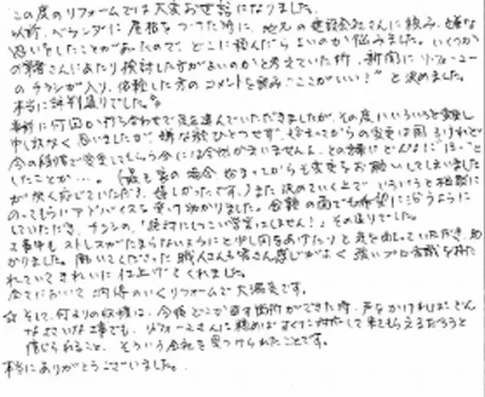 この度のリフォームでは大変お世話になりました。
以前、ベランダに屋根をつけた時に、地元の建設会社さんに頼み、嫌な
思いをしたことがあったので、どこに頼んだらよいのか悩みました。いくつか
の業者さんにあたり検討した方がよいのかと考えていた所、新聞にリフォーユー
のチラシが入り、体験した方のコメントを読み"ここがいい!"と決めました。
本当に評判通りでした。
事前に何回か打ち合わせで足を運んでいただきましたが、その度にいろいろと変更し
申し訳なく思いましたが、嫌な顔ひとつせず、始まってからの変更は困るけれど
今の段階で変更してもらう分には全然かまいませんよ、との
したことか…。(最も 場合 始まってからも変更をお願いしてしまいました
が快く応じていただき、嬉しかったです。)また決めていく上で いろいろと相談に
のってもらいアドバイスを受け助かりました。金額の面でも希望に沿うように
していただき、チラシの、"絶対にしつこい営業はしません!"その通りでした。
工事中もストレスがたまらないようにと少し間をあけたりと気を使っていただき、助
かりました。働いてくださった職人さんも皆さん感じがよく強いプロ意識を持た
れていてきれいに仕上げてくれました。
全てにおいて納得のいくリフォームで大満足です。
☆そして、何よりの収穫は、今後どこか直す箇所ができた時、声をかければどん
な工事でも、リフォームさんに頼めばすぐに対応して来てもらえるだろうと
信じられること、そういう会社を見つけられたことです。
本当にありがとうございました。